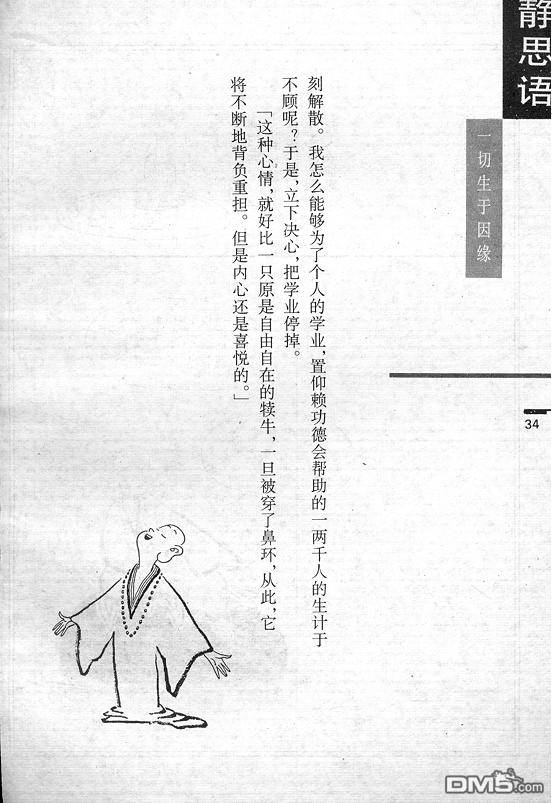 静思语
一切生于因缘
34
刻解散。我怎么能够为了个人的学业，置仰赖功德会帮助的一两千人的生计于
不顾呢？于是，立下决心，把学业停掉。
「这种心情，就好比一只原是自由自在的犊牛，一旦被穿了鼻环，从此，它
将不断地背负重担。但是内心还是喜悦的。」
DM5.com